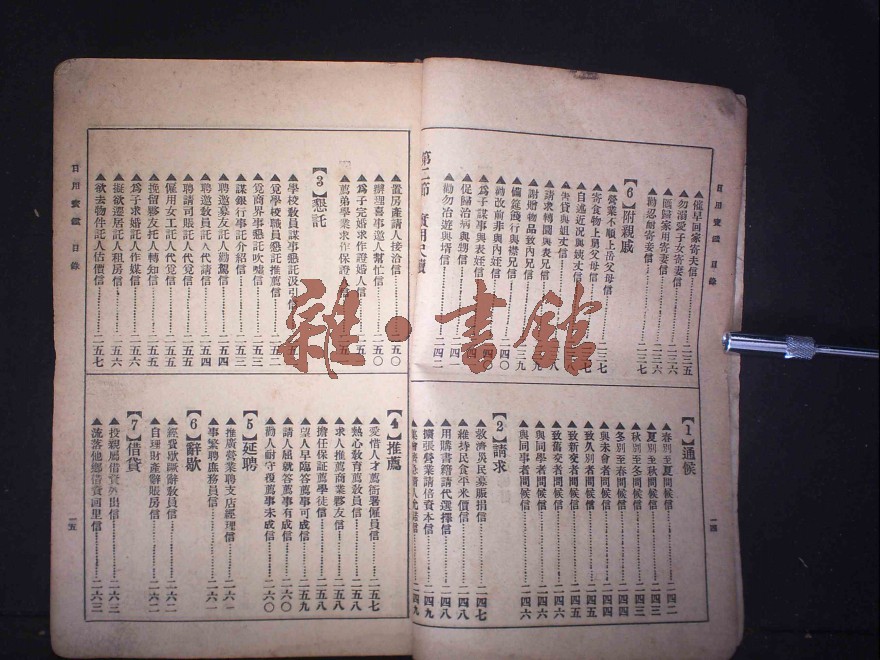 日用寶鑑 目錄
▲催早回家寄夫信……二三五
▲勿溺愛子女寄妻信……二三六
▲匯歸家用寄妻信……二三六
▲勸忍耐寄妻信……二三七
【6】附親戚
▲營業不順上岳父母信……二三七
▲寄食物上舅父母信……二三七
▲自述近況與姨丈信
▲告貸與姐丈信
▲請求轉圜與表兄信
▲謝贈物品致內兄信
▲備筵餞行與襟兄信……二三九
▲勸改前非與內姪信……二四〇
▲爲子謀事與表姪信……二四〇
▲促歸治病與甥信……二四一
▲勸勿冶遊與壻信……二四二
第二節 實用尺牘
【1】通候
▲春別至夏問候信……二四二
▲夏別至秋問候信……二四三
▲秋別至冬問候信……二四三
▲冬別至春問候信……二四四
▲與未會者問候信……二四四
▲致久別者問候信……二四五
▲致新交者問候信……二四五
▲致舊交者問候信……二四六
▲與同學者問候信……二四六
▲與同事者問候信……二四六
【2】請求
▲救濟災民募賑捐信……二四七
▲維持民食平米價信……二四八
▲用購書籍請代選擇信……二四八
▲擴張營業請借資本信……二四九
二四九
一四
▲置房產請人接洽信……二五〇
▲辦理喜事邀人幫忙信……二五〇
▲爲子完婚求作證婚人信
▲薦弟學業求作保證人信
【3】懇託
▲學校敎員謀事懇託汲引信
▲覓學校職員懇託推薦信……二五二
▲覓商界事懇託吹噓信……二五三
▲謀銀行事託介紹信……二五三
▲聘邀慕友託人勸駕信……二五四
▲聘邀敎員託人代請信……二五四
▲聘請司賬託人代覓信……二五五
▲僱用女工託人代覓信……二五五
▲挽留夥友托人轉知信……二五五
▲爲子求婚託人作媒信……二五六
▲擬欲遷居託人租房信……二五六
▲欲去物件託人估價信……二五七
【4】推薦
▲愛惜人才薦衙署僱員信……二五七
▲熱心敎育薦敎員信……二五八
▲求人推薦商業夥友信……二五八
▲擔任保証薦學徒信……二五八
▲望人早臨答薦事可成信……二五九
▲請人屈就答薦事有成信……二六〇
▲勸人耐守復薦事未成信……二六〇
【5】延聘
▲推廣營業聘支店經理信……二六一
▲事繁聘庶務員信……二六一
【6】辭歇
▲經費竭蹶辭敎員信……二六二
▲自理財產辭賬房信……二六二
【7】借貸
▲投親屬借資外出信……二六三
▲流落他鄉借資回里信……二六三
日用寶鑑 目錄
一五
雜·書館